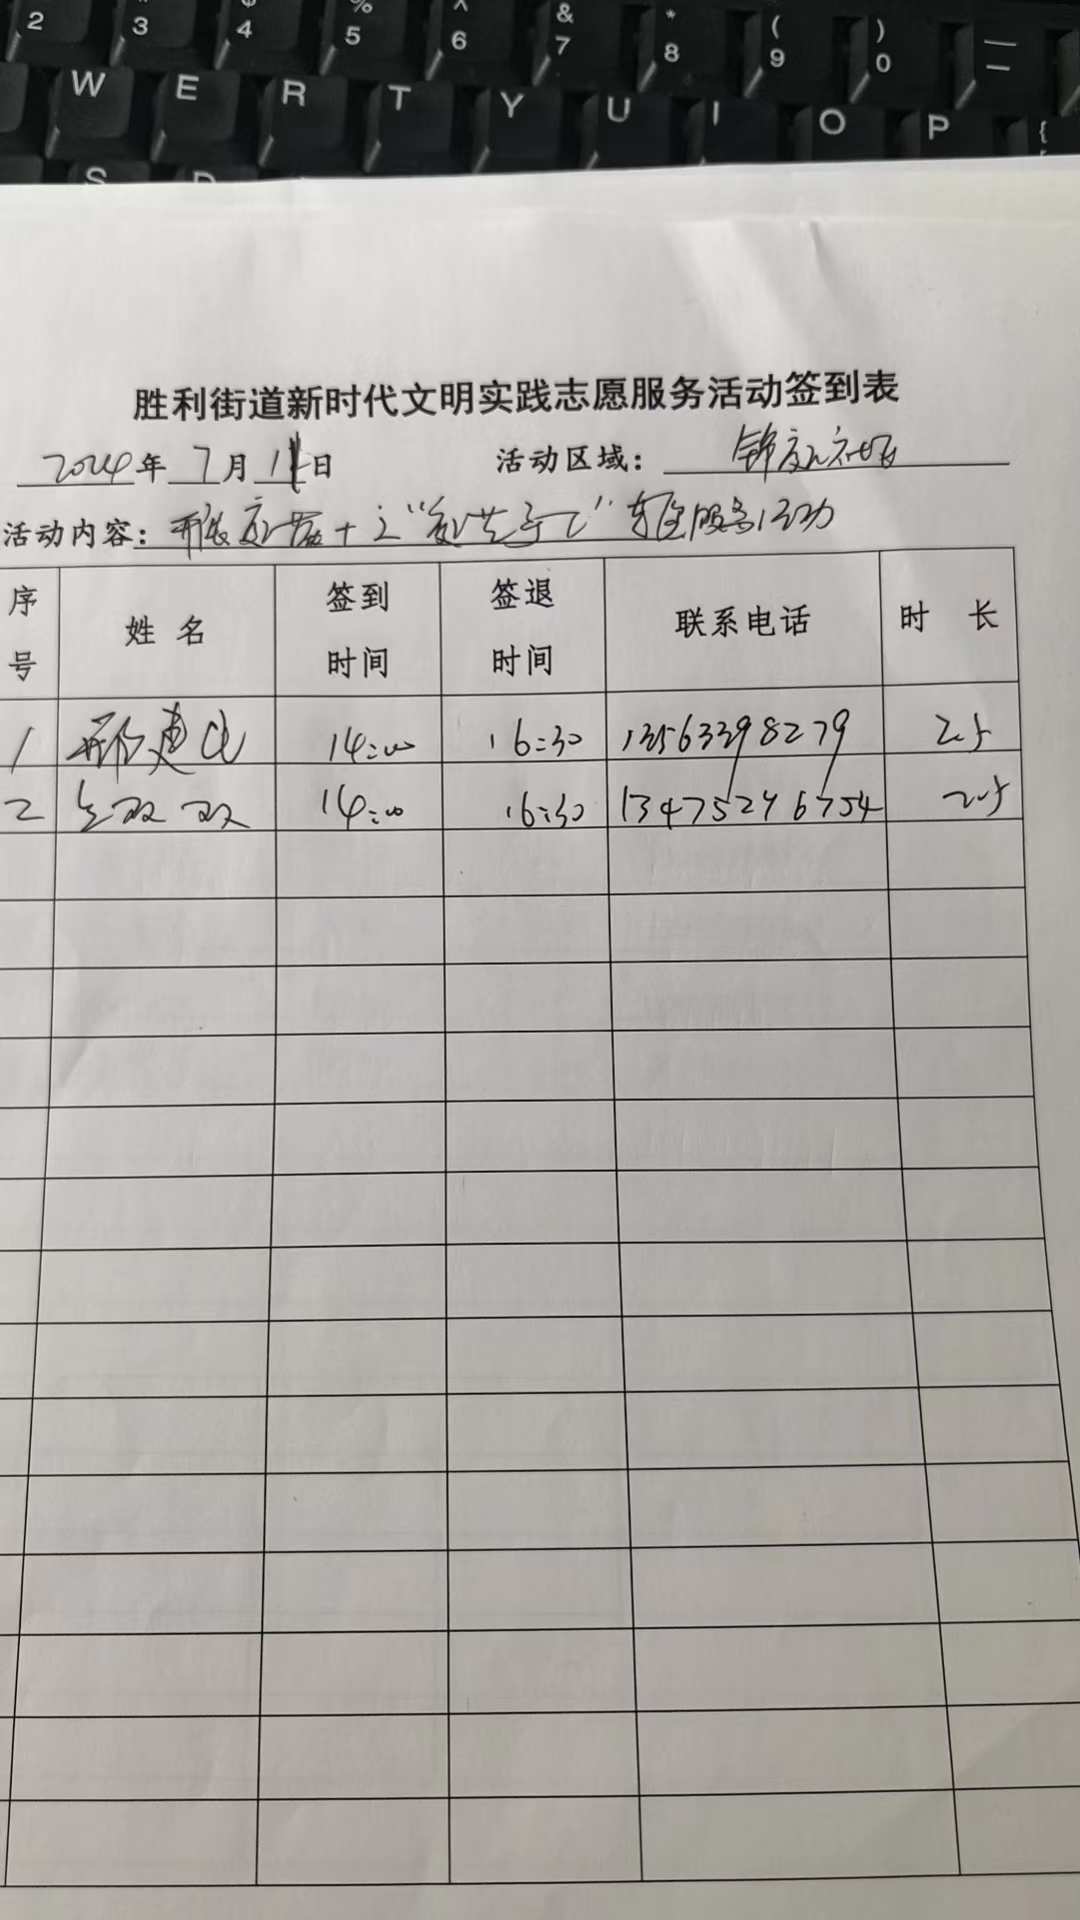 2 3 4 % 5 ^ 6 & 7 * 8 ( 9 ) 0
W E R T Y U I O P {
S D
胜利街道新时代文明实践志愿服务活动签到表
2024年 7月 日 活动区域：锦社区
活动内容：开展 服务活动
序号 姓名 签到时间 签退时间 联系电话 时长
1 邢建 14:00 16:30 13563398279 2.5
2 双双 14:00 16:30 13475276754 2.5